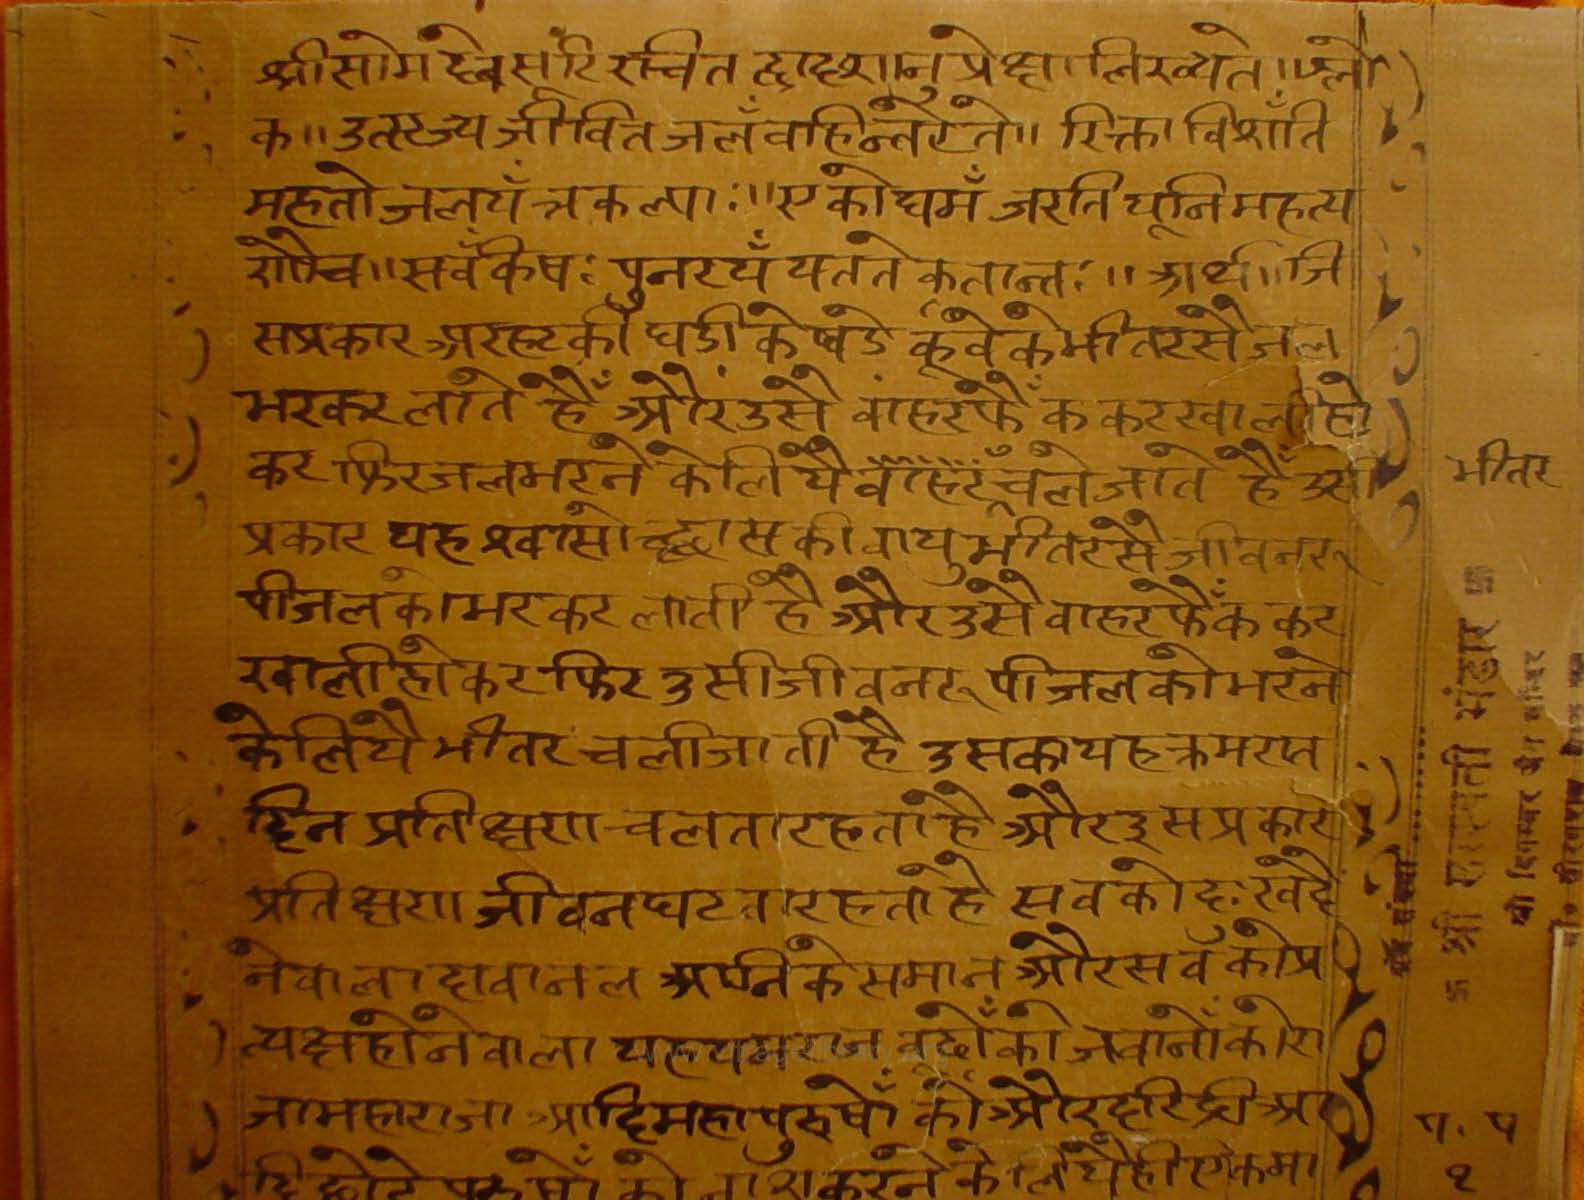 श्रीसोमदेवसूरिरचित द्वादशानुप्रेक्षा लिख्यते॥ श्लो
क॥ उत्सृज्य जीवितजलं वहिरंतरेते॥ रिक्ता विशंति
मरुतो जलयंत्रकल्पाः॥ एकोद्यमं जरति यूनि महत्य
णौच॥ सर्वंकषः पुनरयं यतते कृतान्तः॥ अर्थ॥ जि
सप्रकार अरहटकी घडी के घंडे कूंवे के भीतरसे जल
भरकर लाते हैं और उसे वाहर फैंक कर खाली हो
कर फिर जल भरने के लिये वाहर चले जाते हैं उसी
प्रकार यह श्वासोच्छ्वास की वायु भीतर से जीवनरू
पी जल को भर कर लाती है और उसे वाहर फैंक कर
खाली होकर फिर उसी जीवनरूपी जल को भरने
के लिये भीतर चली जाती है उसका यह क्रम रात
दिन प्रतिक्षण चलता रहता है और इसप्रकार
प्रतिक्षण जीवन घटता रहता है सवको दुःखदे
नेवाला दावानल अग्नि के समान और सर्व को प्र
त्यक्ष होनेवाला यह यमराज वृद्धों को जवानों को रा
जा महाराजा आदि महापुरुषों को और दरिद्री आ
दि छोटे पुरुषों को नाश करने के लिये ही एकसा
भीतर
श्री सरस्वती भंडार
श्री दिगम्बर जैन मन्दिर
ग्रंथ संख्या
१